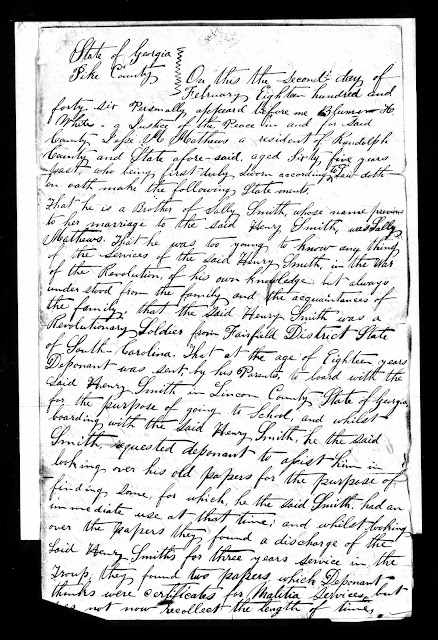 State of Georgia
Pike County
On this the second day of
February Eighteen hundred and
forty-six Personally appeared before me
White - a Justice of the Peace in and for said
County, Mathews a resident of Randolph
County and State afore-said, aged Sixty five years
past, who being first duly sworn according to Law doth
on oath make the following Statements,
That he is a Brother of Sally Smith, whose name previous
to her marriage to the said Henry Smith, was Sally
Mathews. That he was too young to know any thing
of the Services of the said Henry Smith, in the War
of the Revolution, of his own knowledge but always
understood from the family and the acquaintances of
the family, that the Said Henry Smith was a
Revolutionary Soldier from Fairfield District State
of South Carolina. That at the age of Eighteen years
Deponant was sent by his Parents to board with the
Said Henry Smith in Lincon County State of Georgia
for the purpose of going to School, and whilst
boarding with the said Henry Smith, he the said
Smith, requested deponant to assist him in
looking over his old papers for the purpose of
finding some, for which he the said Smith had an
immediate use at that time; and whilst looking
over the papers they found a discharge of the
Said Henry Smiths for three years service in the
Troup, they found two papers which Deponant
thinks were certificates for Malitia Services, but
does not now recollect the length of time,